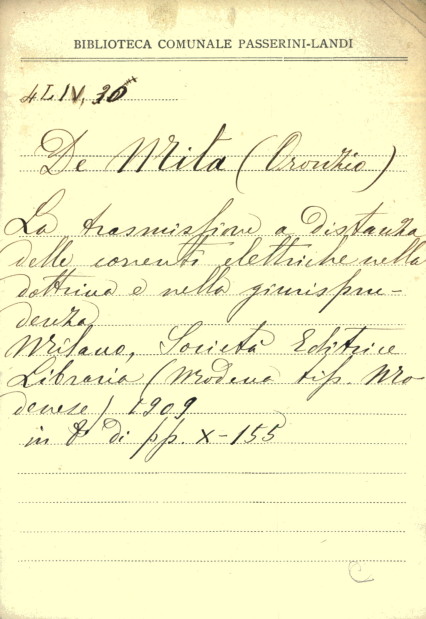 BIBLIOTECA COMUNALE PASSERINI-LANDI
4 L IV, 30
De Mita (Oronzio)
La trasmissione a distanza
delle correnti elettriche nella
dottrina e nella giurispru-
denza
Milano, Società Editrice
Libraria (Modena tip. Mo-
denese) 1909
in 8° di pp. X-155